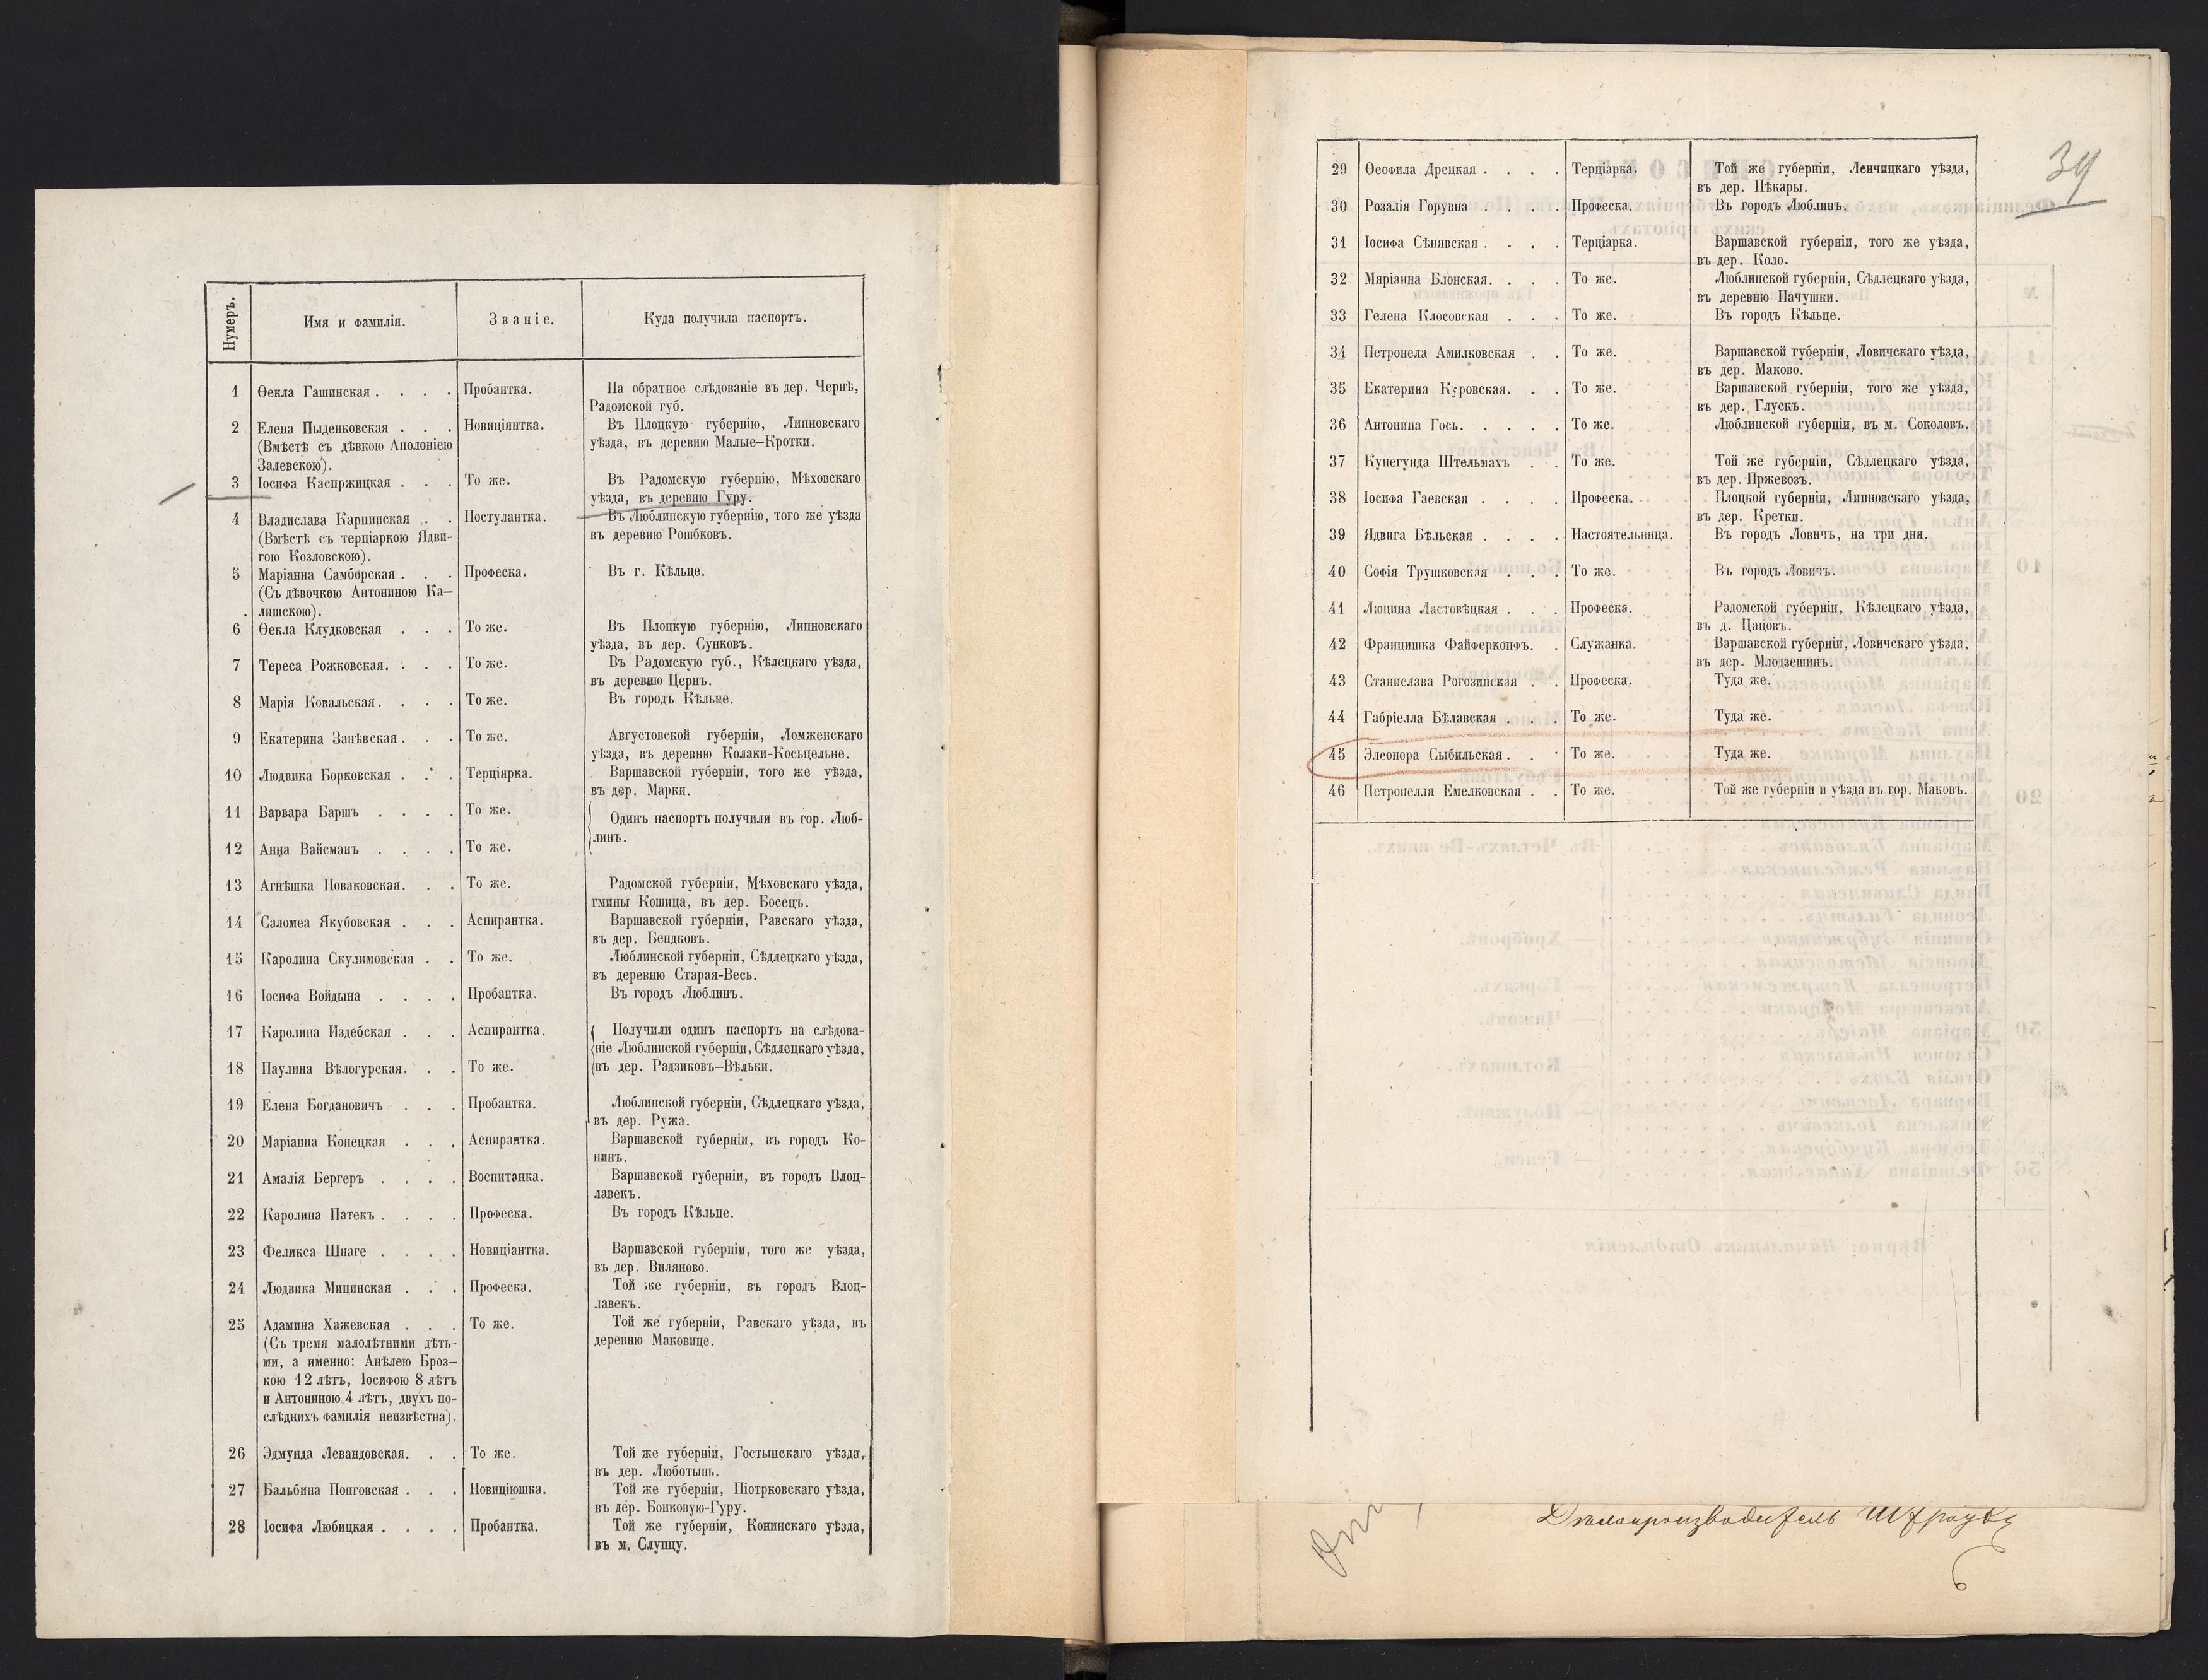 Нумеръ.
Имя и фамилія.
Званіе.
Куда получила паспортъ.
1 Ѳекла Гашинская . . . . Пробантка. На обратное слѣдованіе въ дер. Чернѣ,
Радомской губ.
2 Елена Пыденковская . . . Новиціянтка. Въ Плоцкую губернію, Липновскаго
(Вмѣстѣ съ дѣвкою Аполоніею уѣзда, въ деревню Малые-Кротки.
Залевскою).
3 Іосифа Каспржицкая . . . То же. Въ Радомскую губернію, Мѣховскаго
уѣзда, въ деревню Гуру.
4 Владислава Карпинская . . Постулантка. Въ Люблинскую губернію, того же уѣзда
(Вмѣстѣ съ терціаркою Ядви- въ деревню Рошбковъ.
гою Козловскою).
5 Маріанна Самборская . . . Професка. Въ г. Кѣльце.
(Съ дѣвочкою Антониною Ка-
лишскою).
6 Ѳекла Клудковская . . . То же. Въ Плоцкую губернію, Липновскаго
уѣзда, въ дер. Сунковъ.
7 Тереса Рожковская. . . . То же. Въ Радомскую губ., Кѣлецкаго уѣзда,
въ деревню Цернъ.
8 Марія Ковальская. . . . То же. Въ городъ Кѣльце.
9 Екатерина Занѣвская . . . То же. Августовской губерніи, Ломженскаго
уѣзда, въ деревню Колаки-Косьцельне.
10 Людвика Борковская . . . Терціярка. Варшавской губерніи, того же уѣзда,
въ дер. Марки.
11 Варвара Баршъ . . . . То же. Одинъ паспортъ получили въ гор. Люб-
линъ.
12 Анна Вайсманъ . . . . То же.
13 Агнѣшка Новаковская. . . То же. Радомской губерніи, Мѣховскаго уѣзда,
гмины Кошица, въ дер. Босецъ.
14 Саломеа Якубовская . . . Аспирантка. Варшавской губерніи, Равскаго уѣзда,
въ дер. Бендковъ.
15 Каролина Скулимовская . . То же. Люблинской губерніи, Сѣдлецкаго уѣзда,
въ деревню Старая-Весь.
16 Іосифа Войдына . . . . Пробантка. Въ городъ Люблинъ.
17 Каролина Издебская . . . Аспирантка. Получили одинъ паспортъ на слѣдова-
ніе Люблинской губерніи, Сѣдлецкаго уѣзда,
18 Паулина Вѣлогурская. . . То же. въ дер. Радзиковъ-Вѣльки.
19 Елена Богдановичъ . . . Пробантка. Люблинской губерніи, Сѣдлецкаго уѣзда,
въ дер. Ружа.
20 Маріанна Конецкая . . . Аспирантка. Варшавской губерніи, въ городъ Ко-
нинъ.
21 Амалія Бергеръ . . . . Воспитанка. Варшавской губерніи, въ городъ Влоц-
лавекъ.
22 Каролина Патекъ . . . . Професка. Въ городъ Кѣльце.
23 Феликса Шнаге . . . . Новиціантка. Варшавской губерніи, того же уѣзда,
въ дер. Виляново.
24 Людвика Мицинская . . . Професка. Той же губерніи, въ городъ Влоц-
лавекъ.
25 Адамина Хажевская . . . То же. Той же губерніи, Равскаго уѣзда, въ
(Съ тремя малолѣтними дѣть- деревню Маковице.
ми, а именно: Анѣлею Броз-
кою 12 лѣтъ, Іосифою 8 лѣтъ
и Антониною 4 лѣтъ, двухъ по-
слѣднихъ фамилія неизвѣстна).
26 Эдмунда Левандовская. . . То же. Той же губерніи, Гостынскаго уѣзда,
въ дер. Люботынь.
27 Бальбина Понговская . . . Новиціюшка. Той же губерніи, Піотрковскаго уѣзда,
въ дер. Бонковую-Гуру.
28 Іосифа Любицкая . . . . Пробантка. Той же губерніи, Конинскаго уѣзда,
въ м. Слупцу.
29 Ѳеофила Дрецкая . . . . Терціарка. Той же губерніи, Ленчицкаго уѣзда,
въ дер. Пѣкары.
30 Розалія Горувна . . . . Професка. Въ городъ Люблинъ.
31 Іосифа Сѣнявская . . . . Терціарка. Варшавской губерніи, того же уѣзда,
въ дер. Коло.
32 Мяріанна Блонская. . . . То же. Люблинской губерніи, Сѣдлецкаго уѣзда,
въ деревню Пачушки.
33 Гелена Клосовская . . . То же. Въ городъ Кѣльце.
34 Петронела Амилковская . . То же. Варшавской губерніи, Ловичскаго уѣзда,
въ дер. Маково.
35 Екатерина Куровская. . . То же. Варшавской губерніи, того же уѣзда,
въ дер. Глускъ.
36 Антонина Гось. . . . . То же. Люблинской губерніи, въ м. Соколовъ.
37 Кунегунда Штельмахъ . . То же. Той же губерніи, Сѣдлецкаго уѣзда,
въ дер. Пржевозъ.
38 Іосифа Гаевская . . . . Професка. Плоцкой губерніи, Липновскаго уѣзда,
въ дер. Кретки.
39 Ядвига Бѣльская . . . . Настоятельница. Въ городъ Ловичъ, на три дня.
40 Софія Трушковская . . . То же. Въ городъ Ловичъ.
41 Люцина Ластовѣцкая . . . Професка. Радомской губерніи, Кѣлецкаго уѣзда,
въ д. Цацовъ.
42 Францишка Файферкопфъ. . Служанка. Варшавской губерніи, Ловичскаго уѣзда,
въ дер. Млодзешинъ.
43 Станислава Рогозинская . . Професка. Туда же.
44 Габріелла Бѣлавская . . . То же. Туда же.
45 Элеонора Сыбильская . . . То же. Туда же.
46 Петронелля Емелковская . . То же. Той же губерніи и уѣзда въ гор. Маковъ.
Дѣлопроизводитель